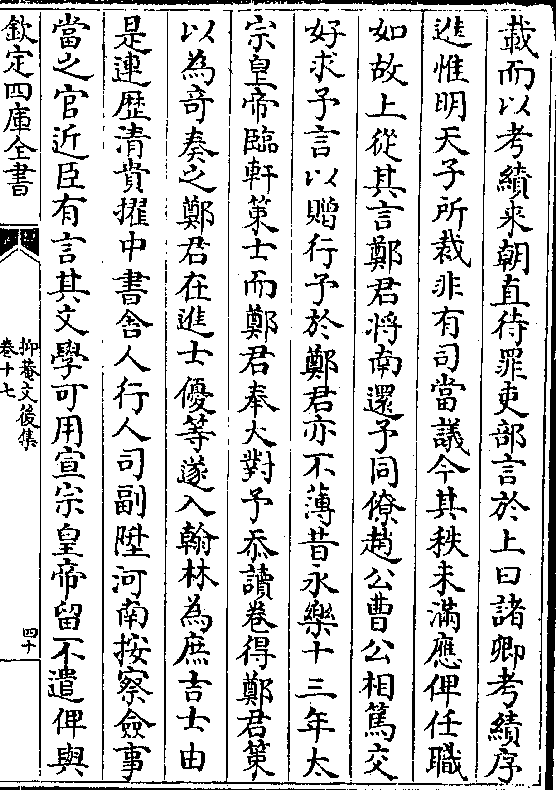 載而以考績來朝直待罪吏部言於上曰諸卿考績序
進惟明天子所裁非有司當議今其秩未滿應俾任職
如故上從其言鄭君將南還予同僚趙公曹公相篤交
好求予言以贈行予於鄭君亦不薄昔永樂十三年太
宗皇帝臨軒策士而鄭君奉大對予忝讀卷得鄭君策
以為奇奏之鄭君在進士優等遂入翰林為庶吉士由
是連歷清貴擢中書舍人行人司副陞河南按察僉事
當之官近臣有言其文學可用宣宗皇帝留不遣俾與
欽定四庫全書
抑菴文後集
卷十七
四十